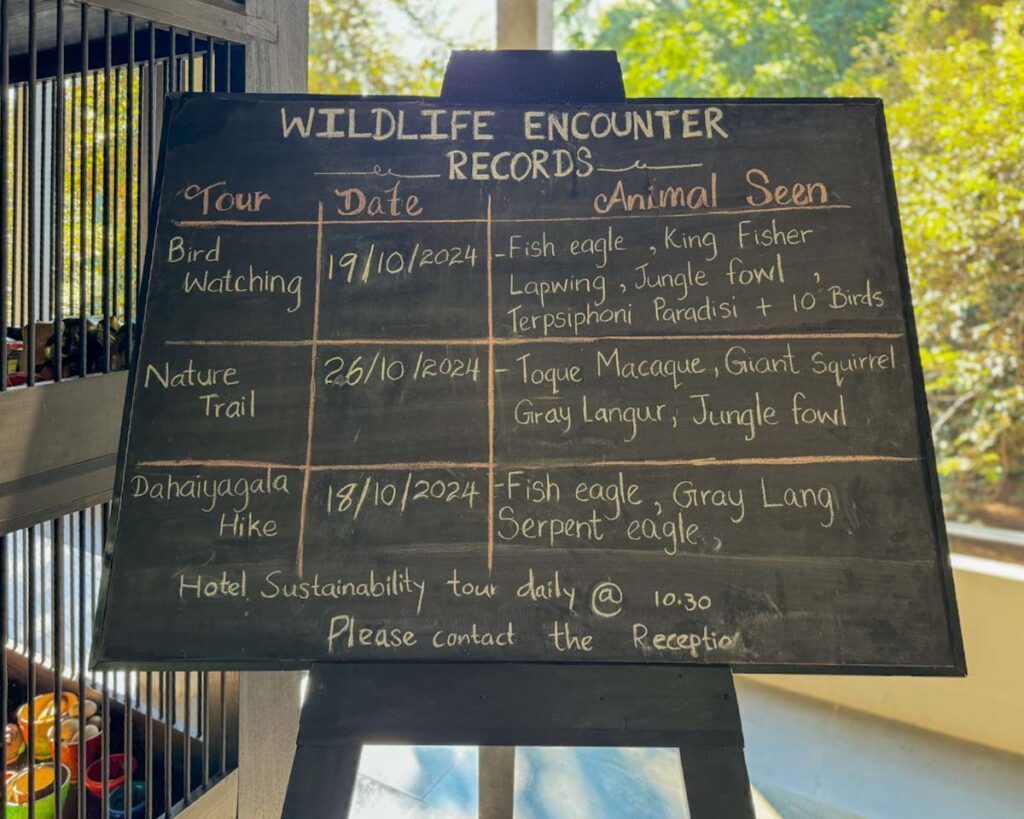 WILDLIFE ENCOUNTER
RECORDS
Tour Date Animal Seen
Bird
Watching
19/10/2024
-Fish eagle , King Fisher
Lapwing , Jungle fowl ,
Terpsiphoni Paradisi + 10 Birds
Nature
Trail
26/10/2024
- Toque Macaque, Giant Squirrel
Gray Langur, Jungle fowl
Dahaiyagala
Hike
18/10/2024
-Fish eagle, Gray Lang
Serpent eagle,
Hotel Sustainability tour daily @ 10.30
Please contact the Receptio